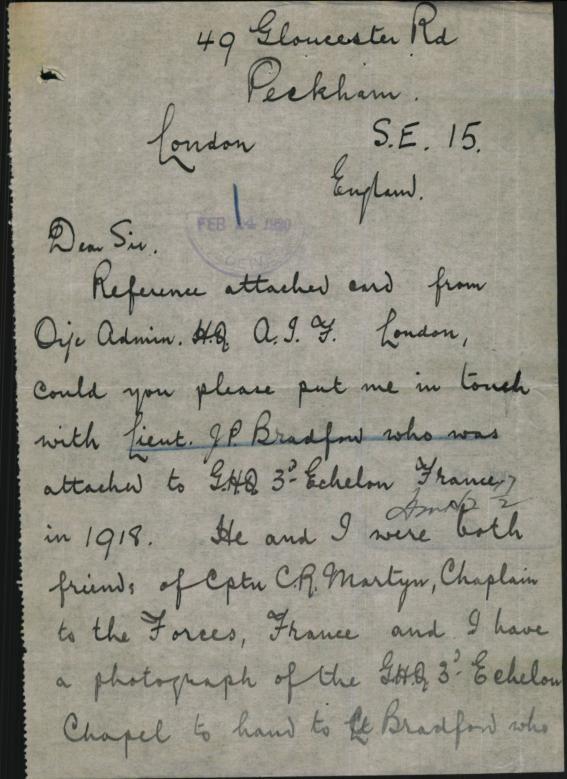 49 Gloucester Rd
Peckham.
London S.E. 15.
England.
FEB 24 1920
Dear Sir.
Reference attached card from
O i/c Admin. H.Q. A.I.F. London,
could you please put me in touch
with Lieut. J.P. Bradford who was
attached to G.H.Q 3rd Echelon France,
in 1918. He and I were both
friends of Cptn C.R. Martyn, Chaplain
to the Forces, France and I have
a photograph of the G.H.Q 3rd Echelon
Chapel to hand to Lt Bradford who